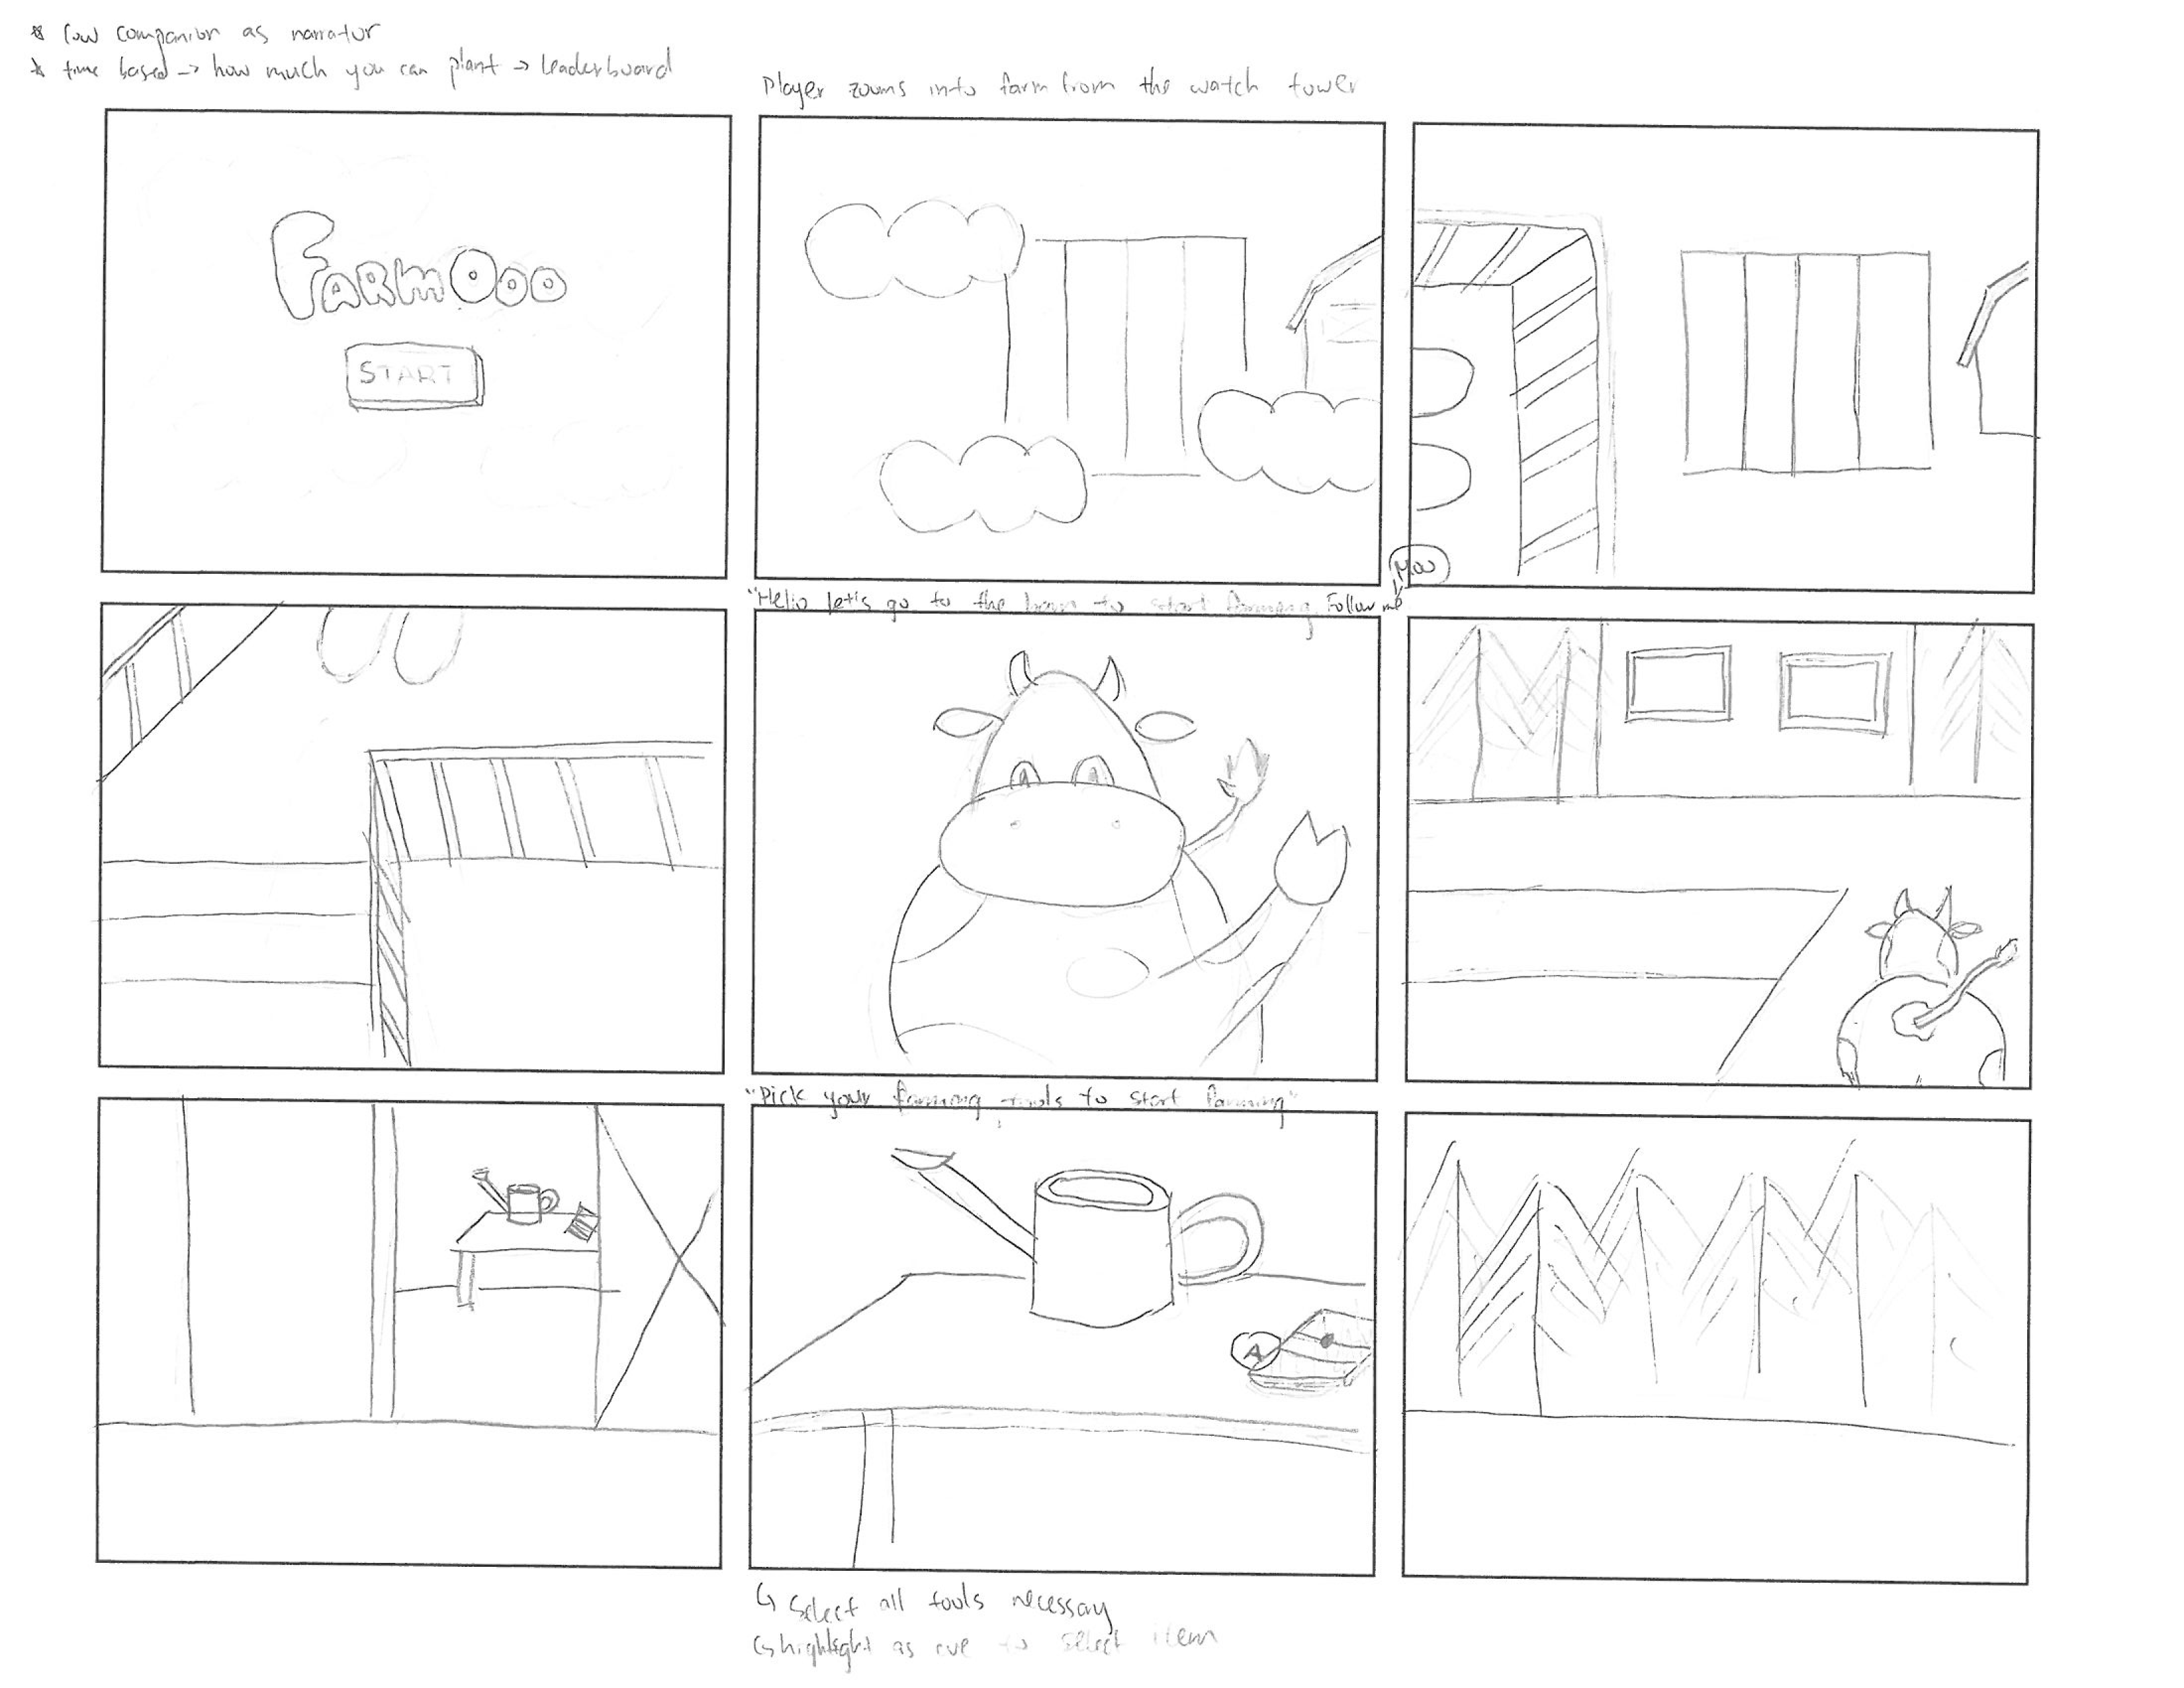 * Cow companion as narrator
* time based -> how much you can plant -> leaderboard
Player zooms into farm from the watch tower
FARMOOO
START
Moo
"Hello let's go to the barn to start farming. Follow me"
"Pick your farming tools to start farming"
A
↳ Select all tools necessary
↳ highlight as cue to select item